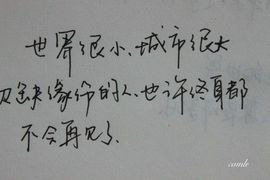 世界很小、城市很大
欠缺缘份的人、也许终身都
不会再见了
comle